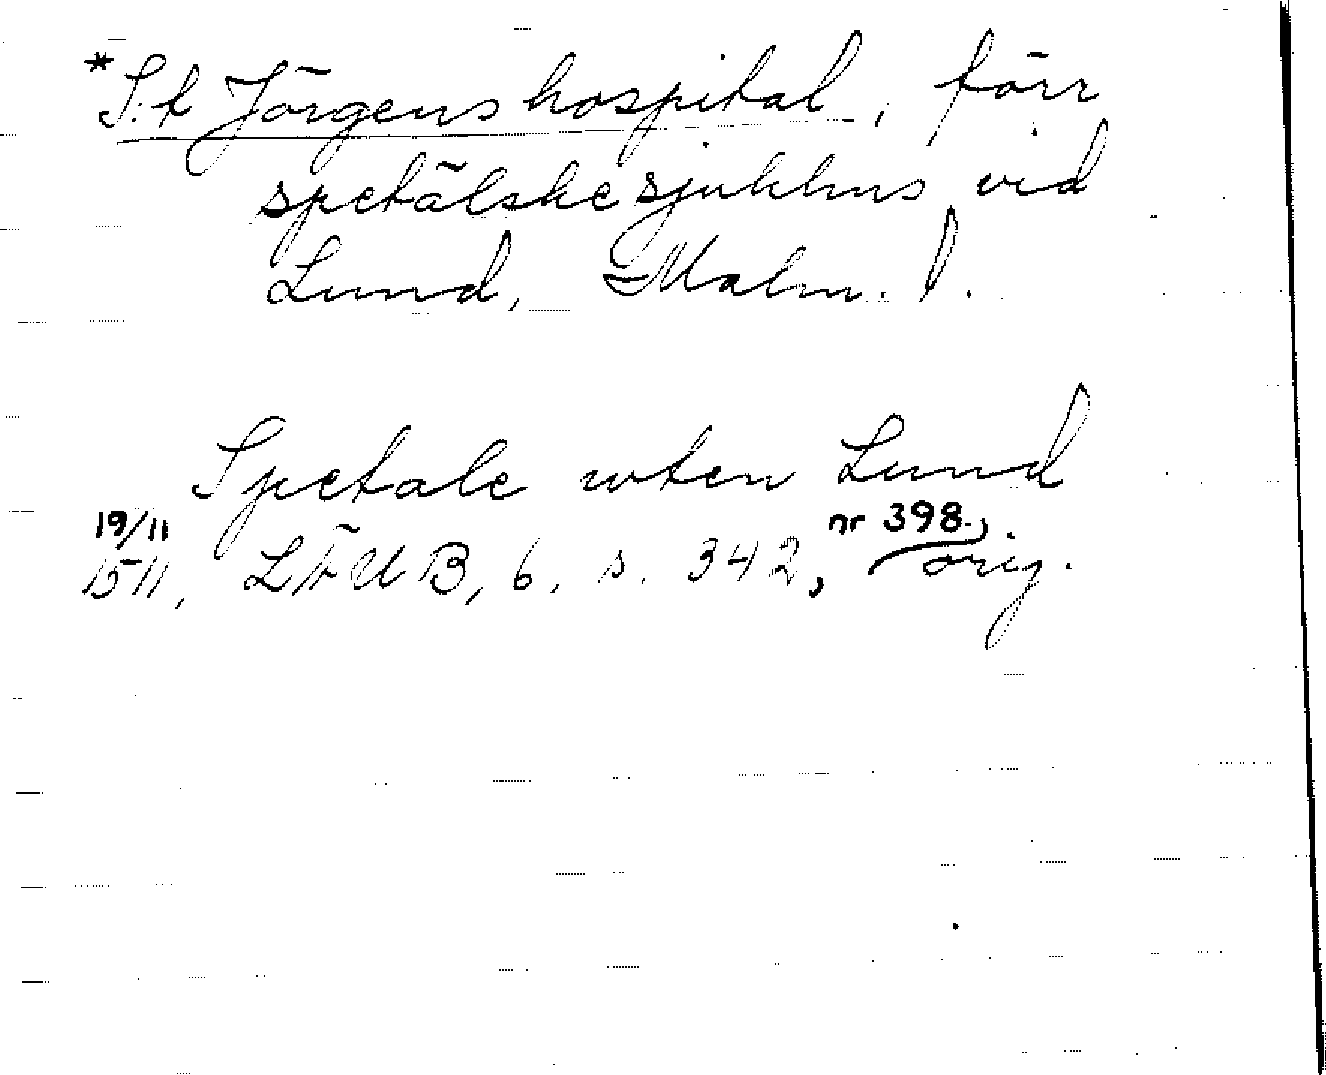 *S:t Jörgens hospital, förr
spetälskesjukhus vid
Lund, Malm. l.
Spetale wten Lund
19/11 nr 398.,
1511, LÄUB, 6, s. 342, orig.